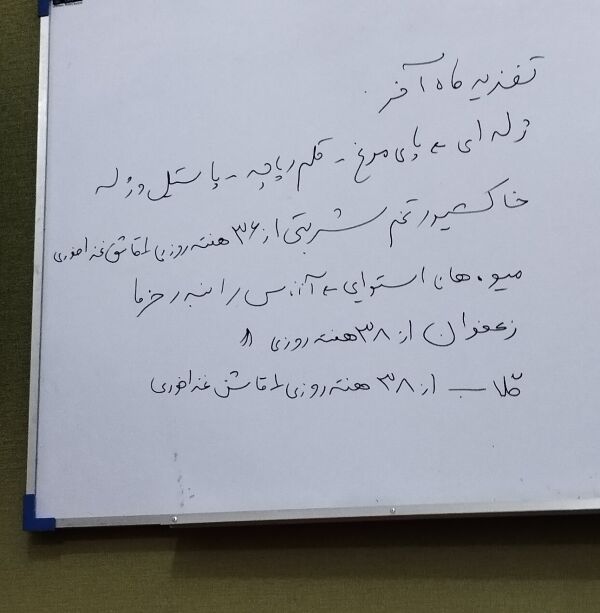 تغذیه ماه آخر
ژله ای ← پای مرغ - قلم و پاچه - پاستیل و ژله
خاکشیر و تخم شربتی از ۳۶ هفته روزی ۱ قاشق غذاخوری
میوه های استوایی ← آناناس و انبه و خرما
زعفران از ۳۸ هفته روزی
گلاب از ۳۸ هفته روزی ۱ قاشق غذاخوری